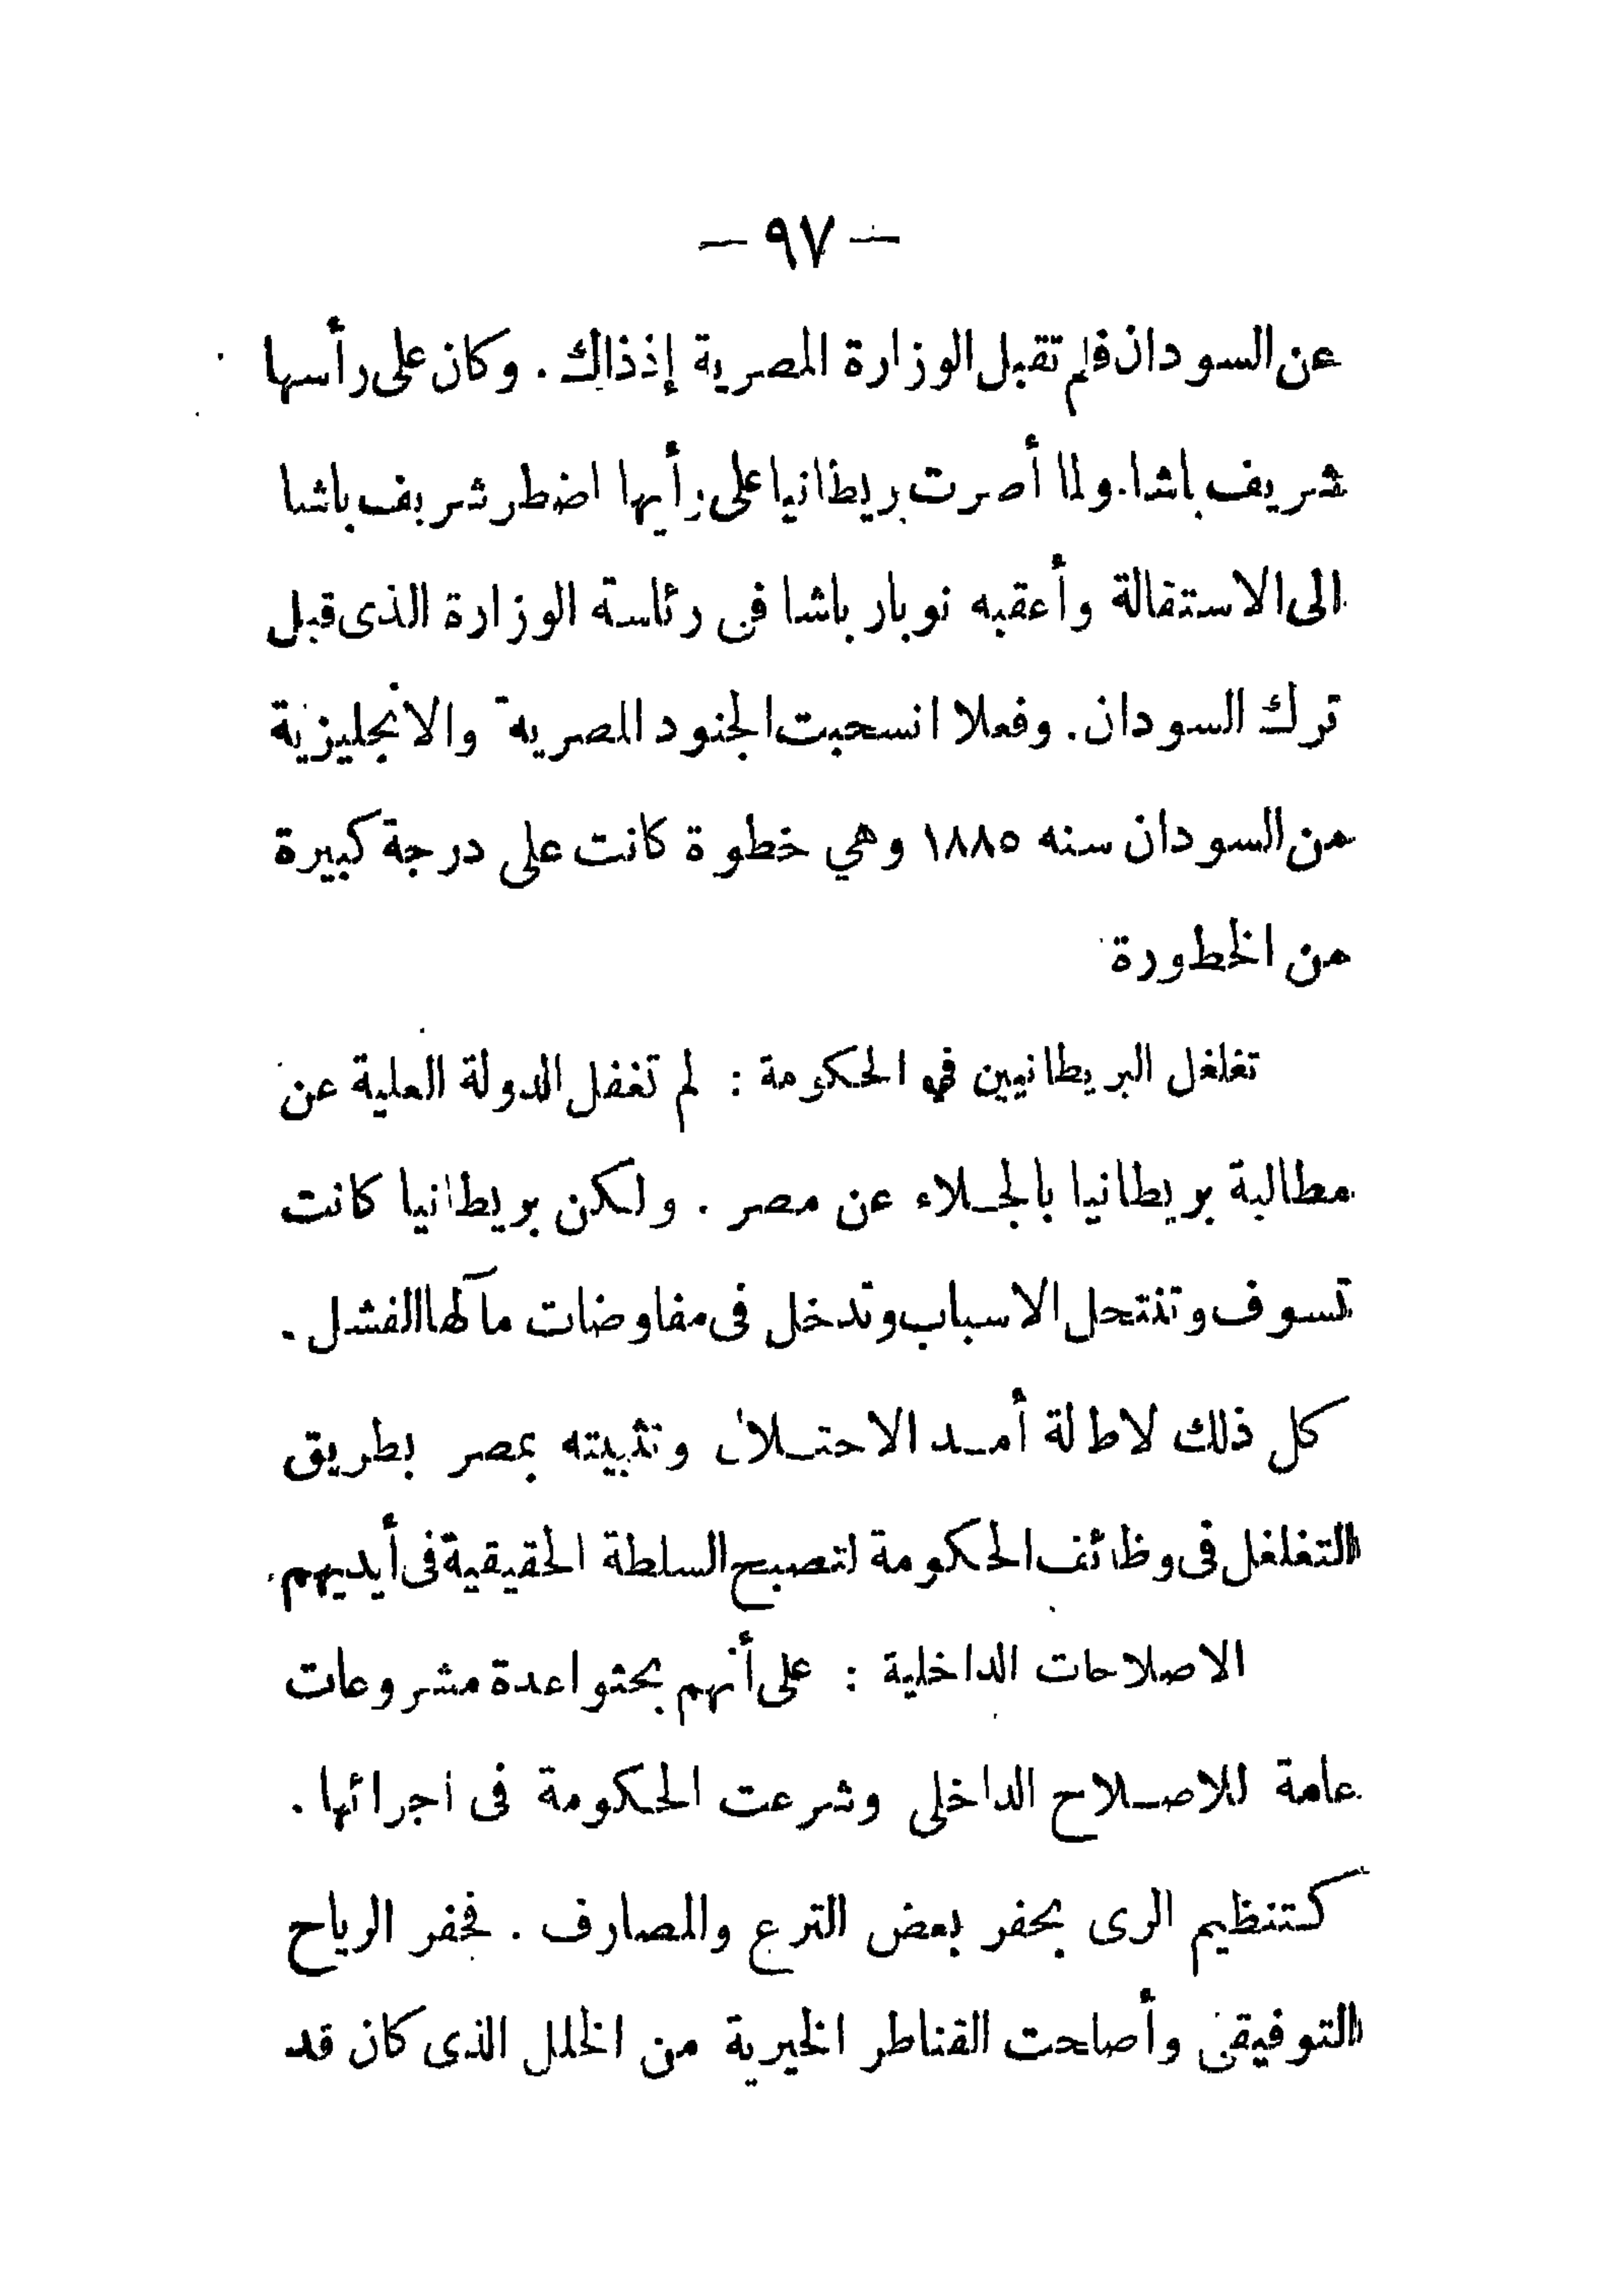 — ٩٧ —
عن السودان فلم تقبل الوزارة المصرية إذذاك . وكان على رأسها
شريف باشا. ولما أصرت بريطانيا على رأيها اضطر شريف باشا
الى الاستقالة وأعقبه نوبار باشا فى رئاسة الوزارة الذى قبل
ترك السودان . وفعلا انسحبت الجنود المصرية والانجليزية
من السودان سنه ١٨٨٥ وهي خطوة كانت على درجة كبيرة
من الخطورة
تغلغل البريطانيين في الحكومة : لم تغفل الدولة العلية عن
مطالبة بريطانيا بالجلاء عن مصر . ولكن بريطانيا كانت
تسوف وتنتحل الاسباب وتدخل فى مفاوضات مآلها الفشل .
كل ذلك لاطالة أمد الاحتلال وتثبيته بمصر بطريق
التغلغل فى وظائف الحكومة لتصبح السلطة الحقيقية فى أيديهم .
الاصلاحات الداخلية : على أنهم بحثوا عدة مشروعات
عامة للاصلاح الداخلى وشرعت الحكومة فى اجرائها .
كتنظيم الرى بحفر بعض الترع والمصارف . فحفر الرياح
التوفيقى وأصلحت القناطر الخيرية من الخلل الذى كان قد